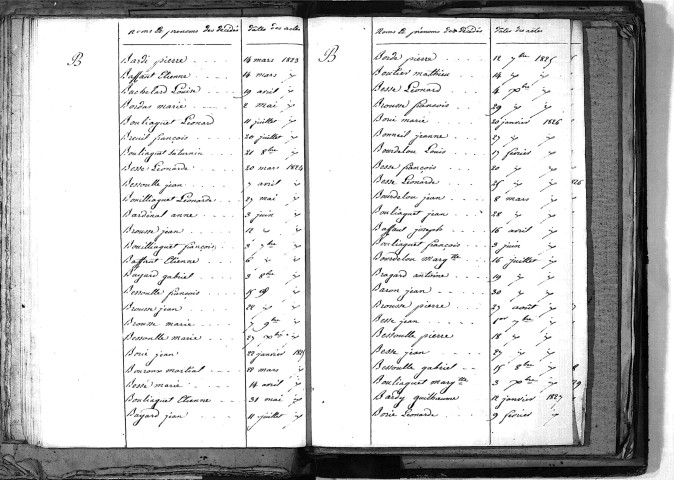 Noms & prénoms des Décédés Dates des actes
B
Bardi pierre 14 mars 1823
Baffaut Etienne 14 mars
Bachelard Louise 19 avril
Bordas marie 2 mai
Bouliaguet Léonard 11 juillet
Breuil françois 20 juillet
Bouliaguet saturnin 21 8bre
Besse Léonarde 20 mars 1824
Bessoulle jean 7 avril
Bouilliaguet Léonarde 27 mai
Bardinal anne 3 juin
Brousse jean 12
Bouilliaguet françois 3 7bre
Baffaut Etienne 6
Bayard gabriel 3 8bre
Bessoulle françois 15
Brousse jean 20
Brousse marie 7 9bre
Bessoulle marie 27 Xbre
Borie jean 22 janvier
Bouroux martial 21 mars
Besse marie 14 avril
Bouliaguet Etienne 31 mai
Bayard jean 11 juillet
Noms & prénoms des Décédés Dates des actes
B
Borde pierre 12 7bre 1825
Boutier mathieu 14
Besse Léonard 4 Xbre
Brousse françois 29
Borie marie 20 janvier 1826
Bonneil jeanne 27
Bourdelou Louis 17 février
Besse françois 20
Besse Léonarde 25
Bourdelou jean 8 mars
Bouliaguet jean 28
Baffaut joseph 16 avril
Bouliaguet françois 3 juin
Bourdelou margte 16 juillet
Bragard antoine 19
Baron jean 30
Brousse pierre 27 août
Besse jean 1er 7bre
Bessoulle pierre 18
Besse jean 27
Bessoulle gabriel 15 8bre
Bouliaguet margte 3 Xbre
Bardy guilhaume 12 janvier 1827
Borie Léonarde 9 février